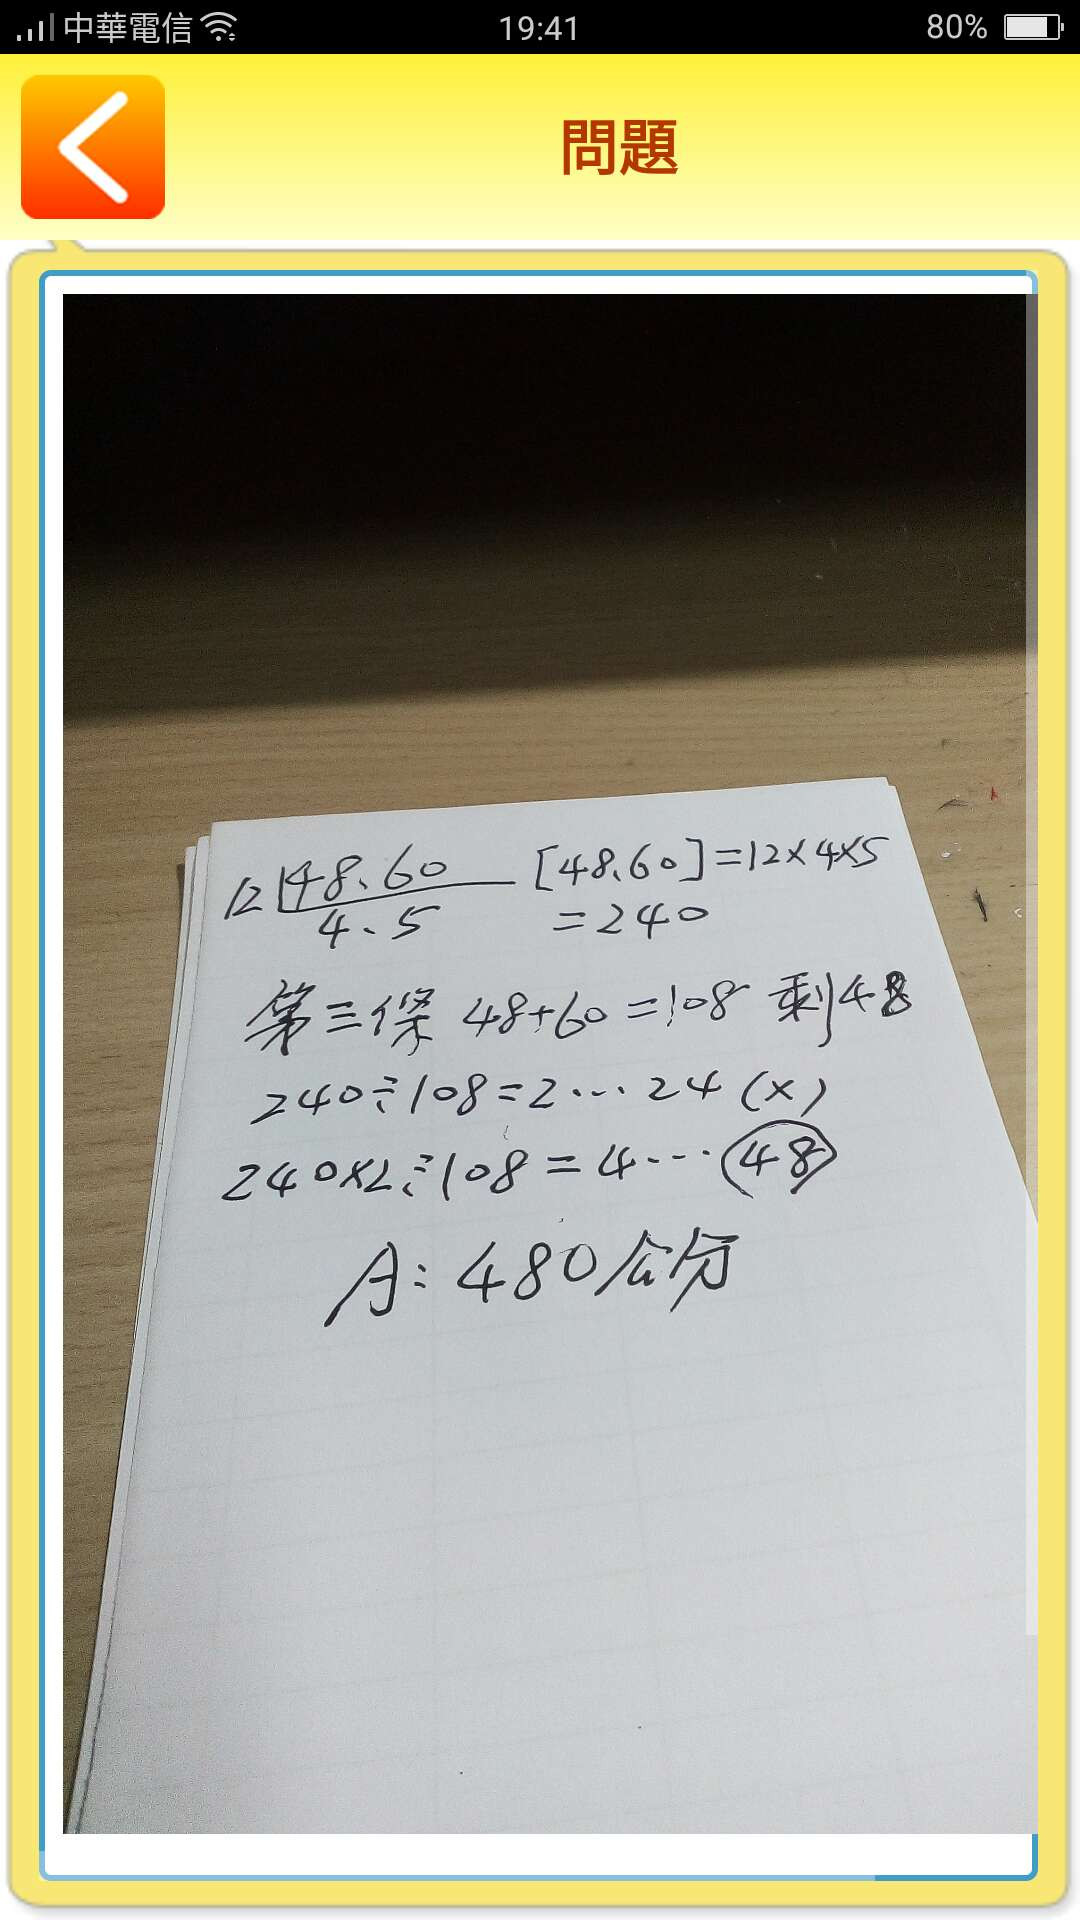 中華電信 19:41 80%
問題
12 48、60 [48、60]=12×4×5
4、5 =240
第三條 48+60=108 剩48
240÷108=2…24(×)
240×2÷108=4…48
A:480公分